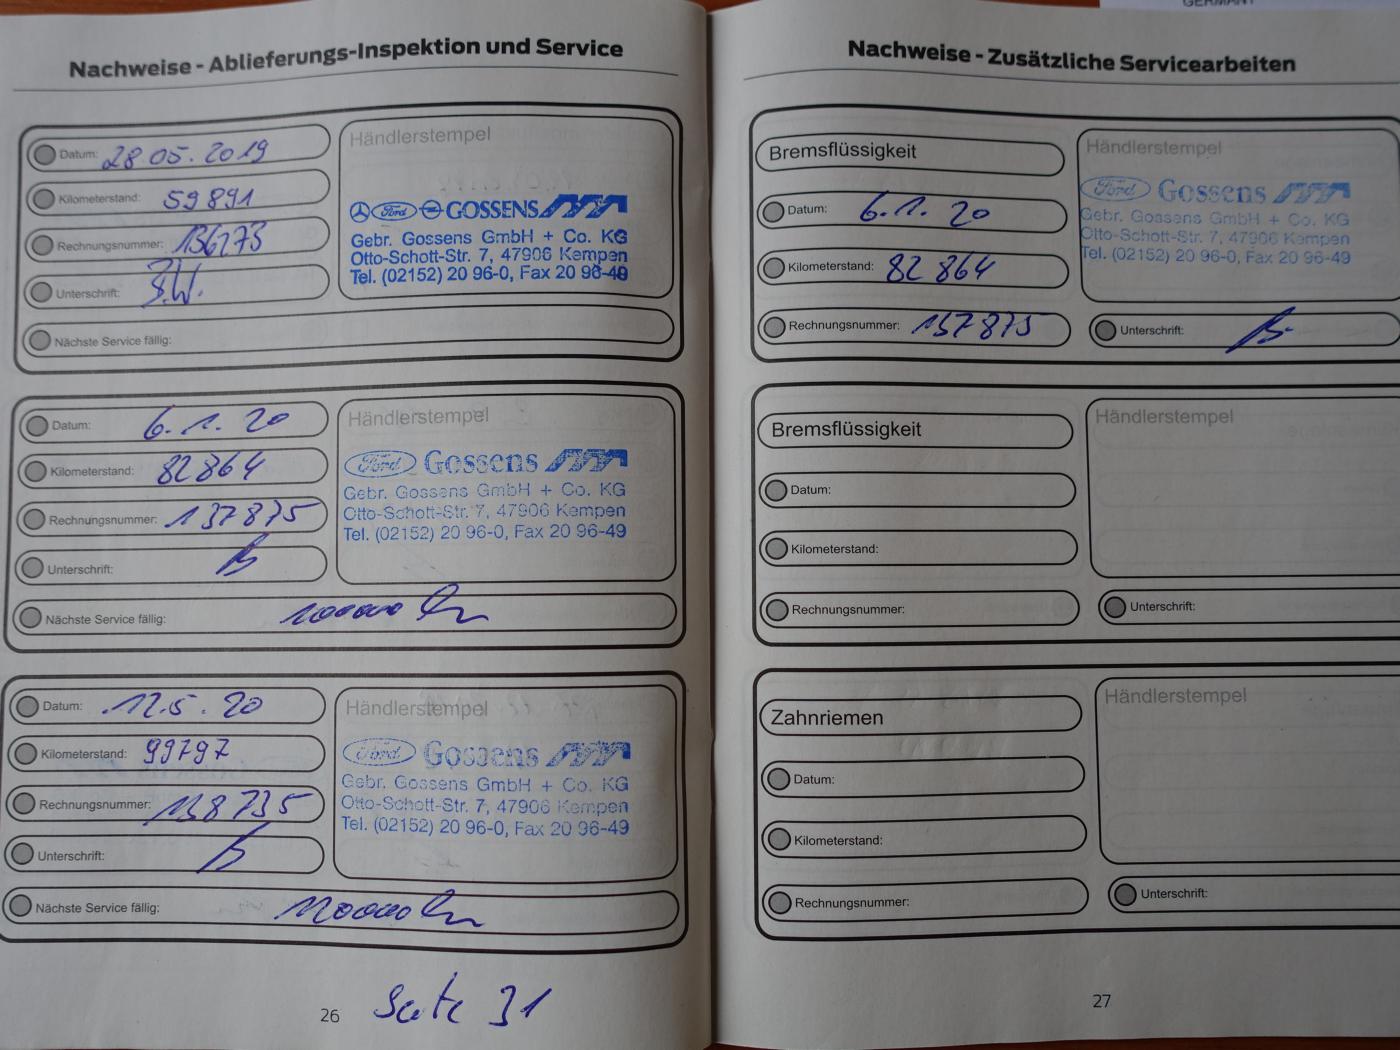 GERMANY
Nachweise - Ablieferungs-Inspektion und Service
Datum: 28.05.2019
Kilometerstand: 59891
Rechnungsnummer: 136273
Unterschrift: B.W.
Nächste Service fällig:
Händlerstempel
Ford GOSSENS
Gebr. Gossens GmbH + Co. KG
Otto-Schott-Str. 7, 47906 Kempen
Tel. (02152) 20 96-0, Fax 20 96-49
Datum: 6.1.20
Kilometerstand: 82864
Rechnungsnummer: 137875
Unterschrift:
Nächste Service fällig: 100000 km
Händlerstempel
Ford Gossens
Gebr. Gossens GmbH + Co. KG
Otto-Schott-Str. 7, 47906 Kempen
Tel. (02152) 20 96-0, Fax 20 96-49
Datum: 12.5.20
Kilometerstand: 99797
Rechnungsnummer: 138735
Unterschrift:
Nächste Service fällig: 120000 km
Händlerstempel
Ford Gossens
Gebr. Gossens GmbH + Co. KG
Otto-Schott-Str. 7, 47906 Kempen
Tel. (02152) 20 96-0, Fax 20 96-49
26
Seite 31
Nachweise - Zusätzliche Servicearbeiten
Bremsflüssigkeit
Datum: 6.1.20
Kilometerstand: 82864
Rechnungsnummer: 137875
Händlerstempel
Ford Gossens
Gebr. Gossens GmbH + Co. KG
Otto-Schott-Str. 7, 47906 Kempen
Tel. (02152) 20 96-0, Fax 20 96-49
Unterschrift:
Bremsflüssigkeit
Datum:
Kilometerstand:
Rechnungsnummer:
Händlerstempel
Unterschrift:
Zahnriemen
Datum:
Kilometerstand:
Rechnungsnummer:
Händlerstempel
Unterschrift:
27